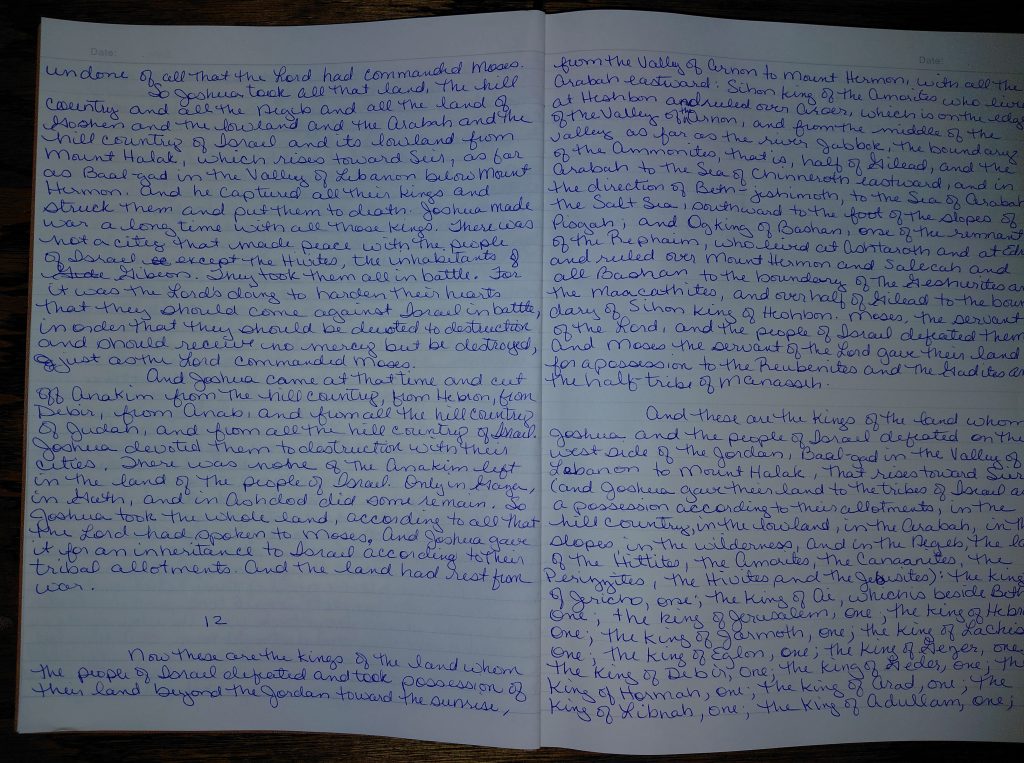 Date:
undone of all that the Lord had commanded Moses.
So Joshua took all that land, the hill
country and all the Negeb and all the land of
Goshen and the lowland and the Arabah and the
hill country of Israel and its lowland from
Mount Halak, which rises toward Seir, as far
as Baal-gad in the Valley of Lebanon below Mount
Hermon. And he captured all their kings and
struck them and put them to death. Joshua made
war a long time with all those kings. There was
not a city that made peace with the people
of Israel except the Hivites, the inhabitants of
Gibeon. They took them all in battle. For
it was the Lord's doing to harden their hearts
that they should come against Israel in battle,
in order that they should be devoted to destruction
and should receive no mercy but be destroyed,
just as the Lord commanded Moses.
And Joshua came at that time and cut
off Anakim from the hill country, from Hebron, from
Debir, from Anab, and from all the hill country
of Judah, and from all the hill country of Israel.
Joshua devoted them to destruction with their
cities. There was none of the Anakim left
in the land of the people of Israel. Only in Gaza,
in Gath, and in Ashdod did some remain. So
Joshua took the whole land, according to all that
the Lord had spoken to Moses. And Joshua gave
it for an inheritance to Israel according to their
tribal allotments. And the land had rest from
war.
12
Now these are the kings of the land whom
the people of Israel defeated and took possession of
their land beyond the Jordan toward the sunrise,
Date:
from the Valley of Arnon to Mount Hermon, with all the
Arabah eastward: Sihon king of the Amorites who lived
at Heshbon and ruled over Aroer, which is on the edge
of the Valley of the Arnon, and from the middle of the
valley as far as the river Jabbok, the boundary
of the Ammonites, that is, half of Gilead, and the
Arabah to the Sea of Chinneroth eastward, and in
the direction of Beth-jeshimoth, to the Sea of Arabah
the Salt Sea, southward to the foot of the slopes of
Pisgah; and Og king of Bashan, one of the remnant
of the Rephaim, who lived at Ashtaroth and at Edr
and ruled over Mount Hermon and Salecah and
all Bashan to the boundary of the Geshurites an
the Maacathites, and over half of Gilead to the boun
dary of Sihon king of Heshbon. Moses, the servant
of the Lord, and the people of Israel defeated them
And Moses the servant of the Lord gave their land
for a possession to the Reubenites and the Gadites an
the half-tribe of Manasseh.
And these are the kings of the land whom
Joshua and the people of Israel defeated on the
west side of the Jordan, Baal-gad in the Valley of
Lebanon to Mount Halak, that rises toward Seir
(and Joshua gave their land to the tribes of Israel as
a possession according to their allotments, in the
hill country, in the lowland, in the Arabah, in th
slopes, in the wilderness, and in the Negeb, the la
of the Hittites, the Amorites, the Canaanites, the
Perizzites, the Hivites and the Jebusites): the king
of Jericho, one; the king of Ai, which is beside Beth
one; the king of Jerusalem, one, the king of Hebr
one; the king of Jarmoth, one; the king of Lachis
one; the king of Eglon, one; the king of Gezer, one
the king of Debir, one; the king of Geder, one; th
king of Hormah, one; the king of Arad, one, the
king of Libnah, one; the king of Adullam, one;